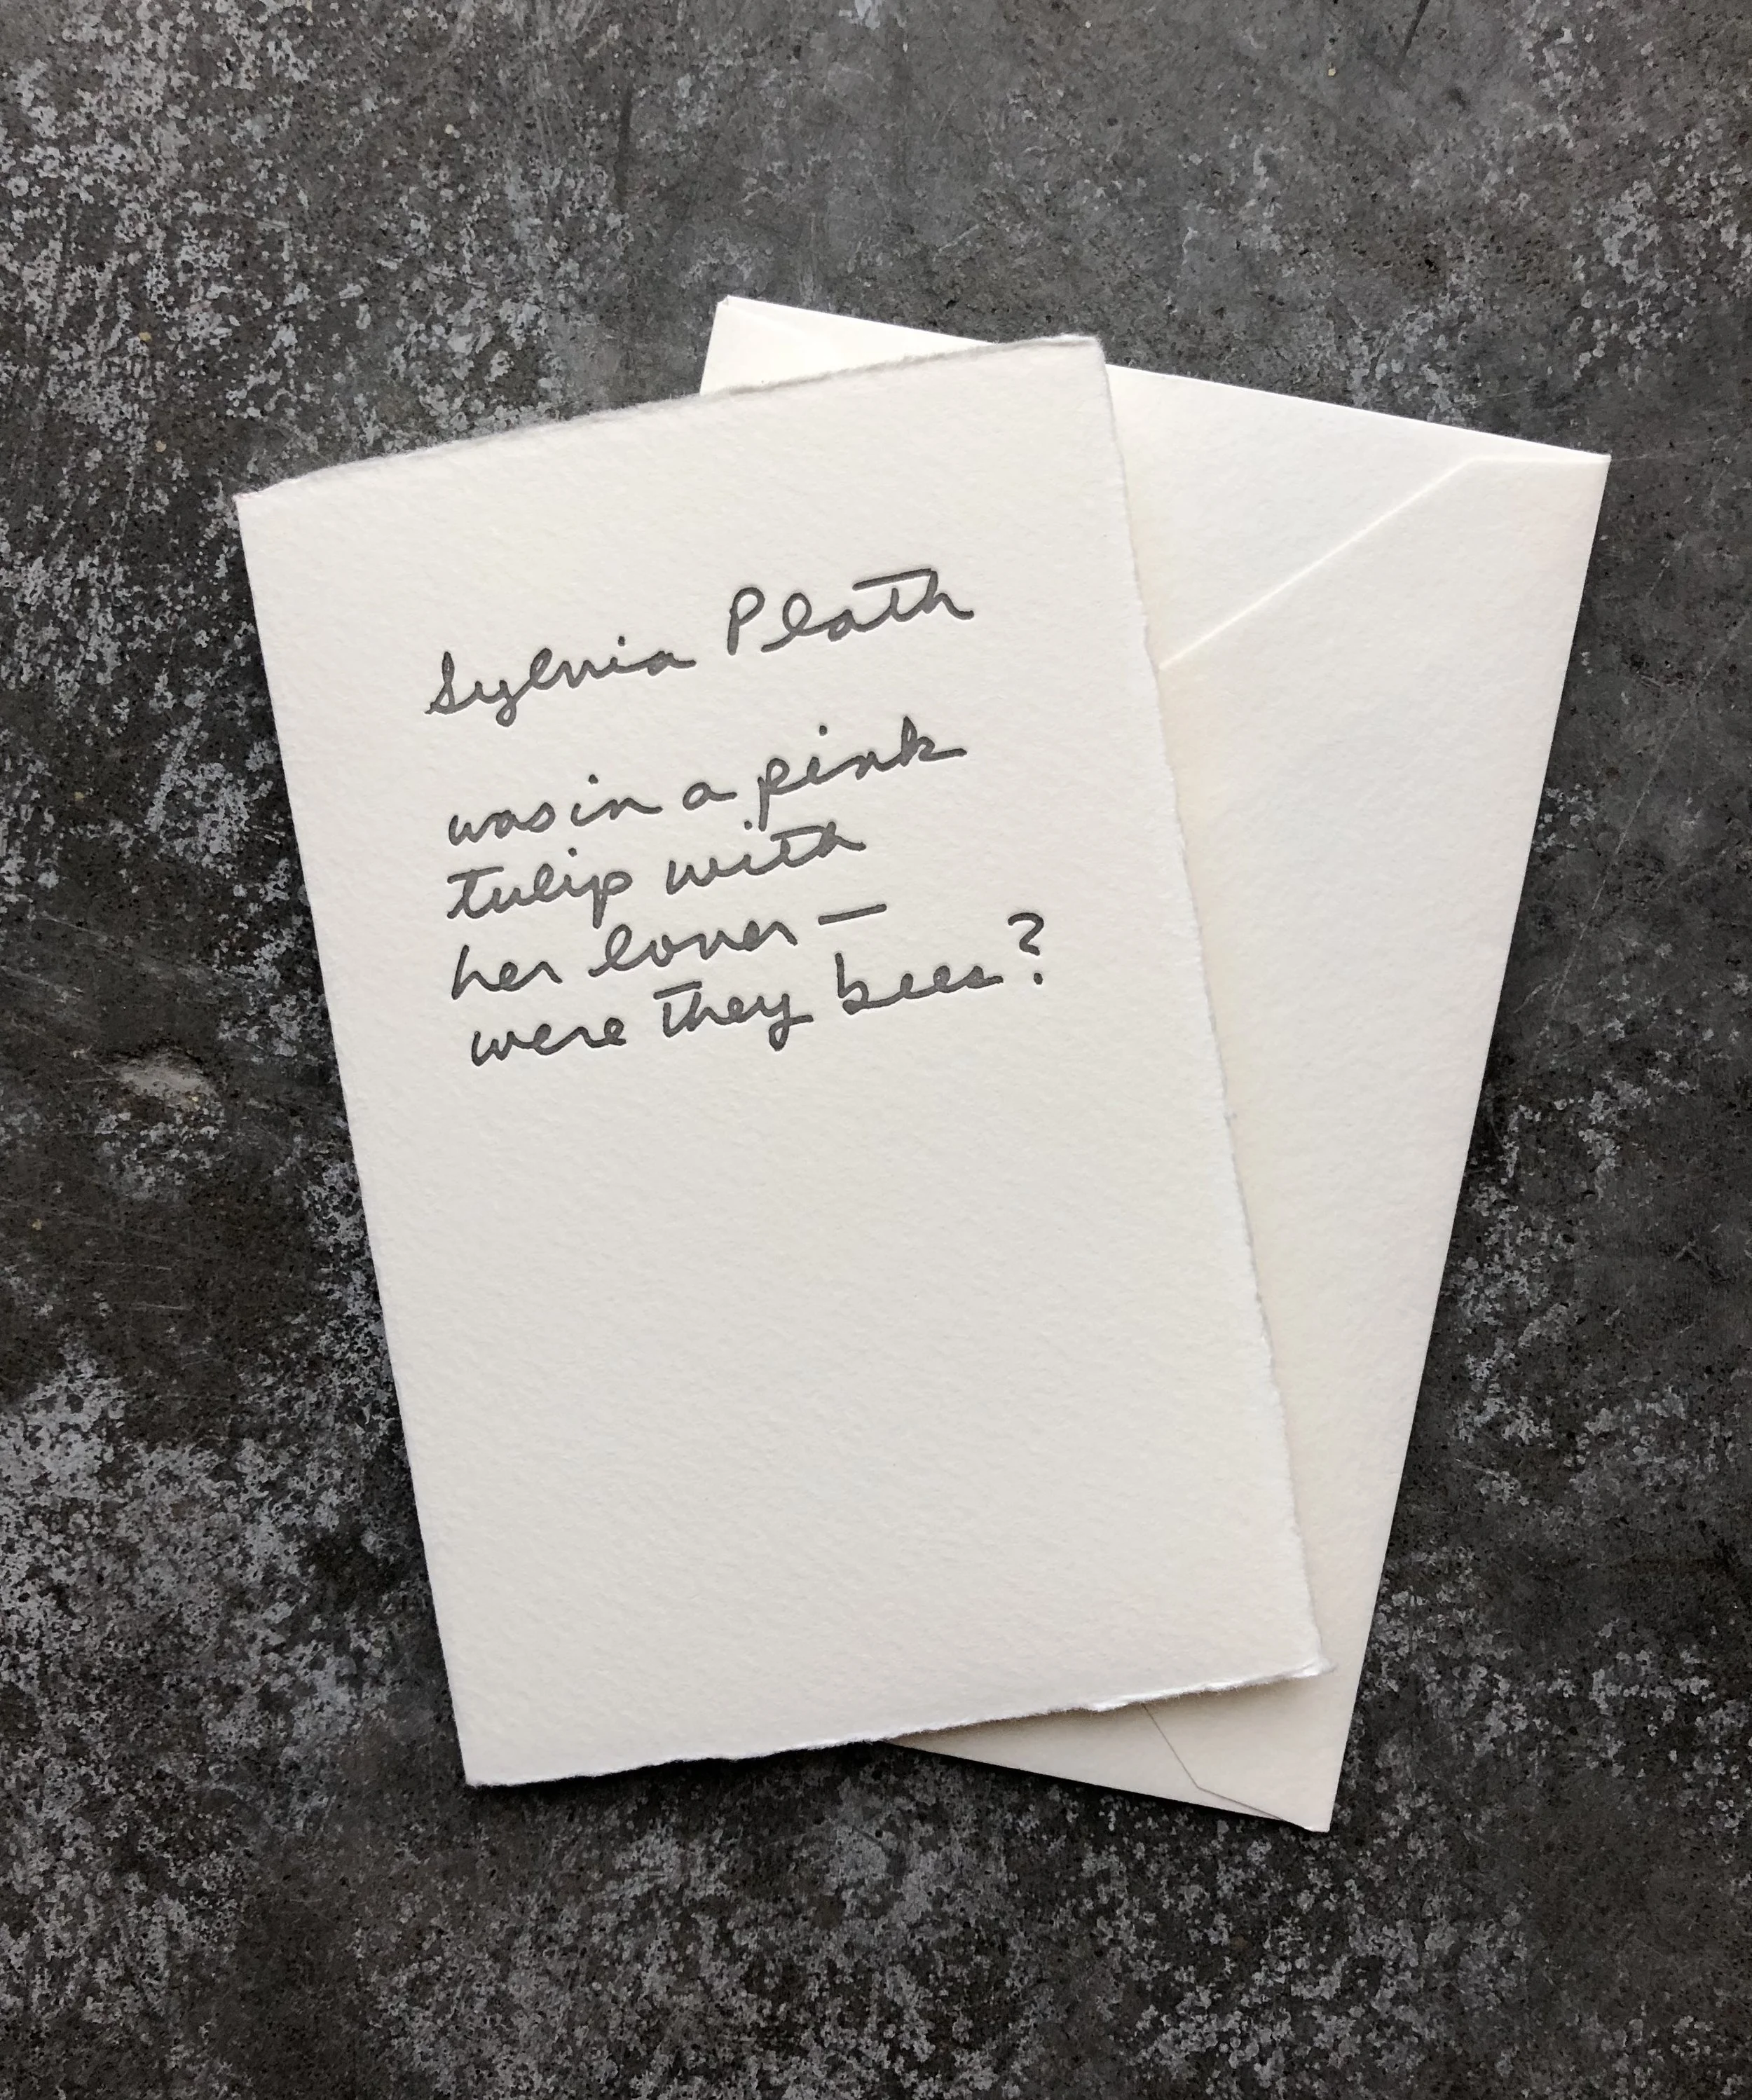 Sylvia Plath
was in a pink
tulip with
her lover —
were they bees?